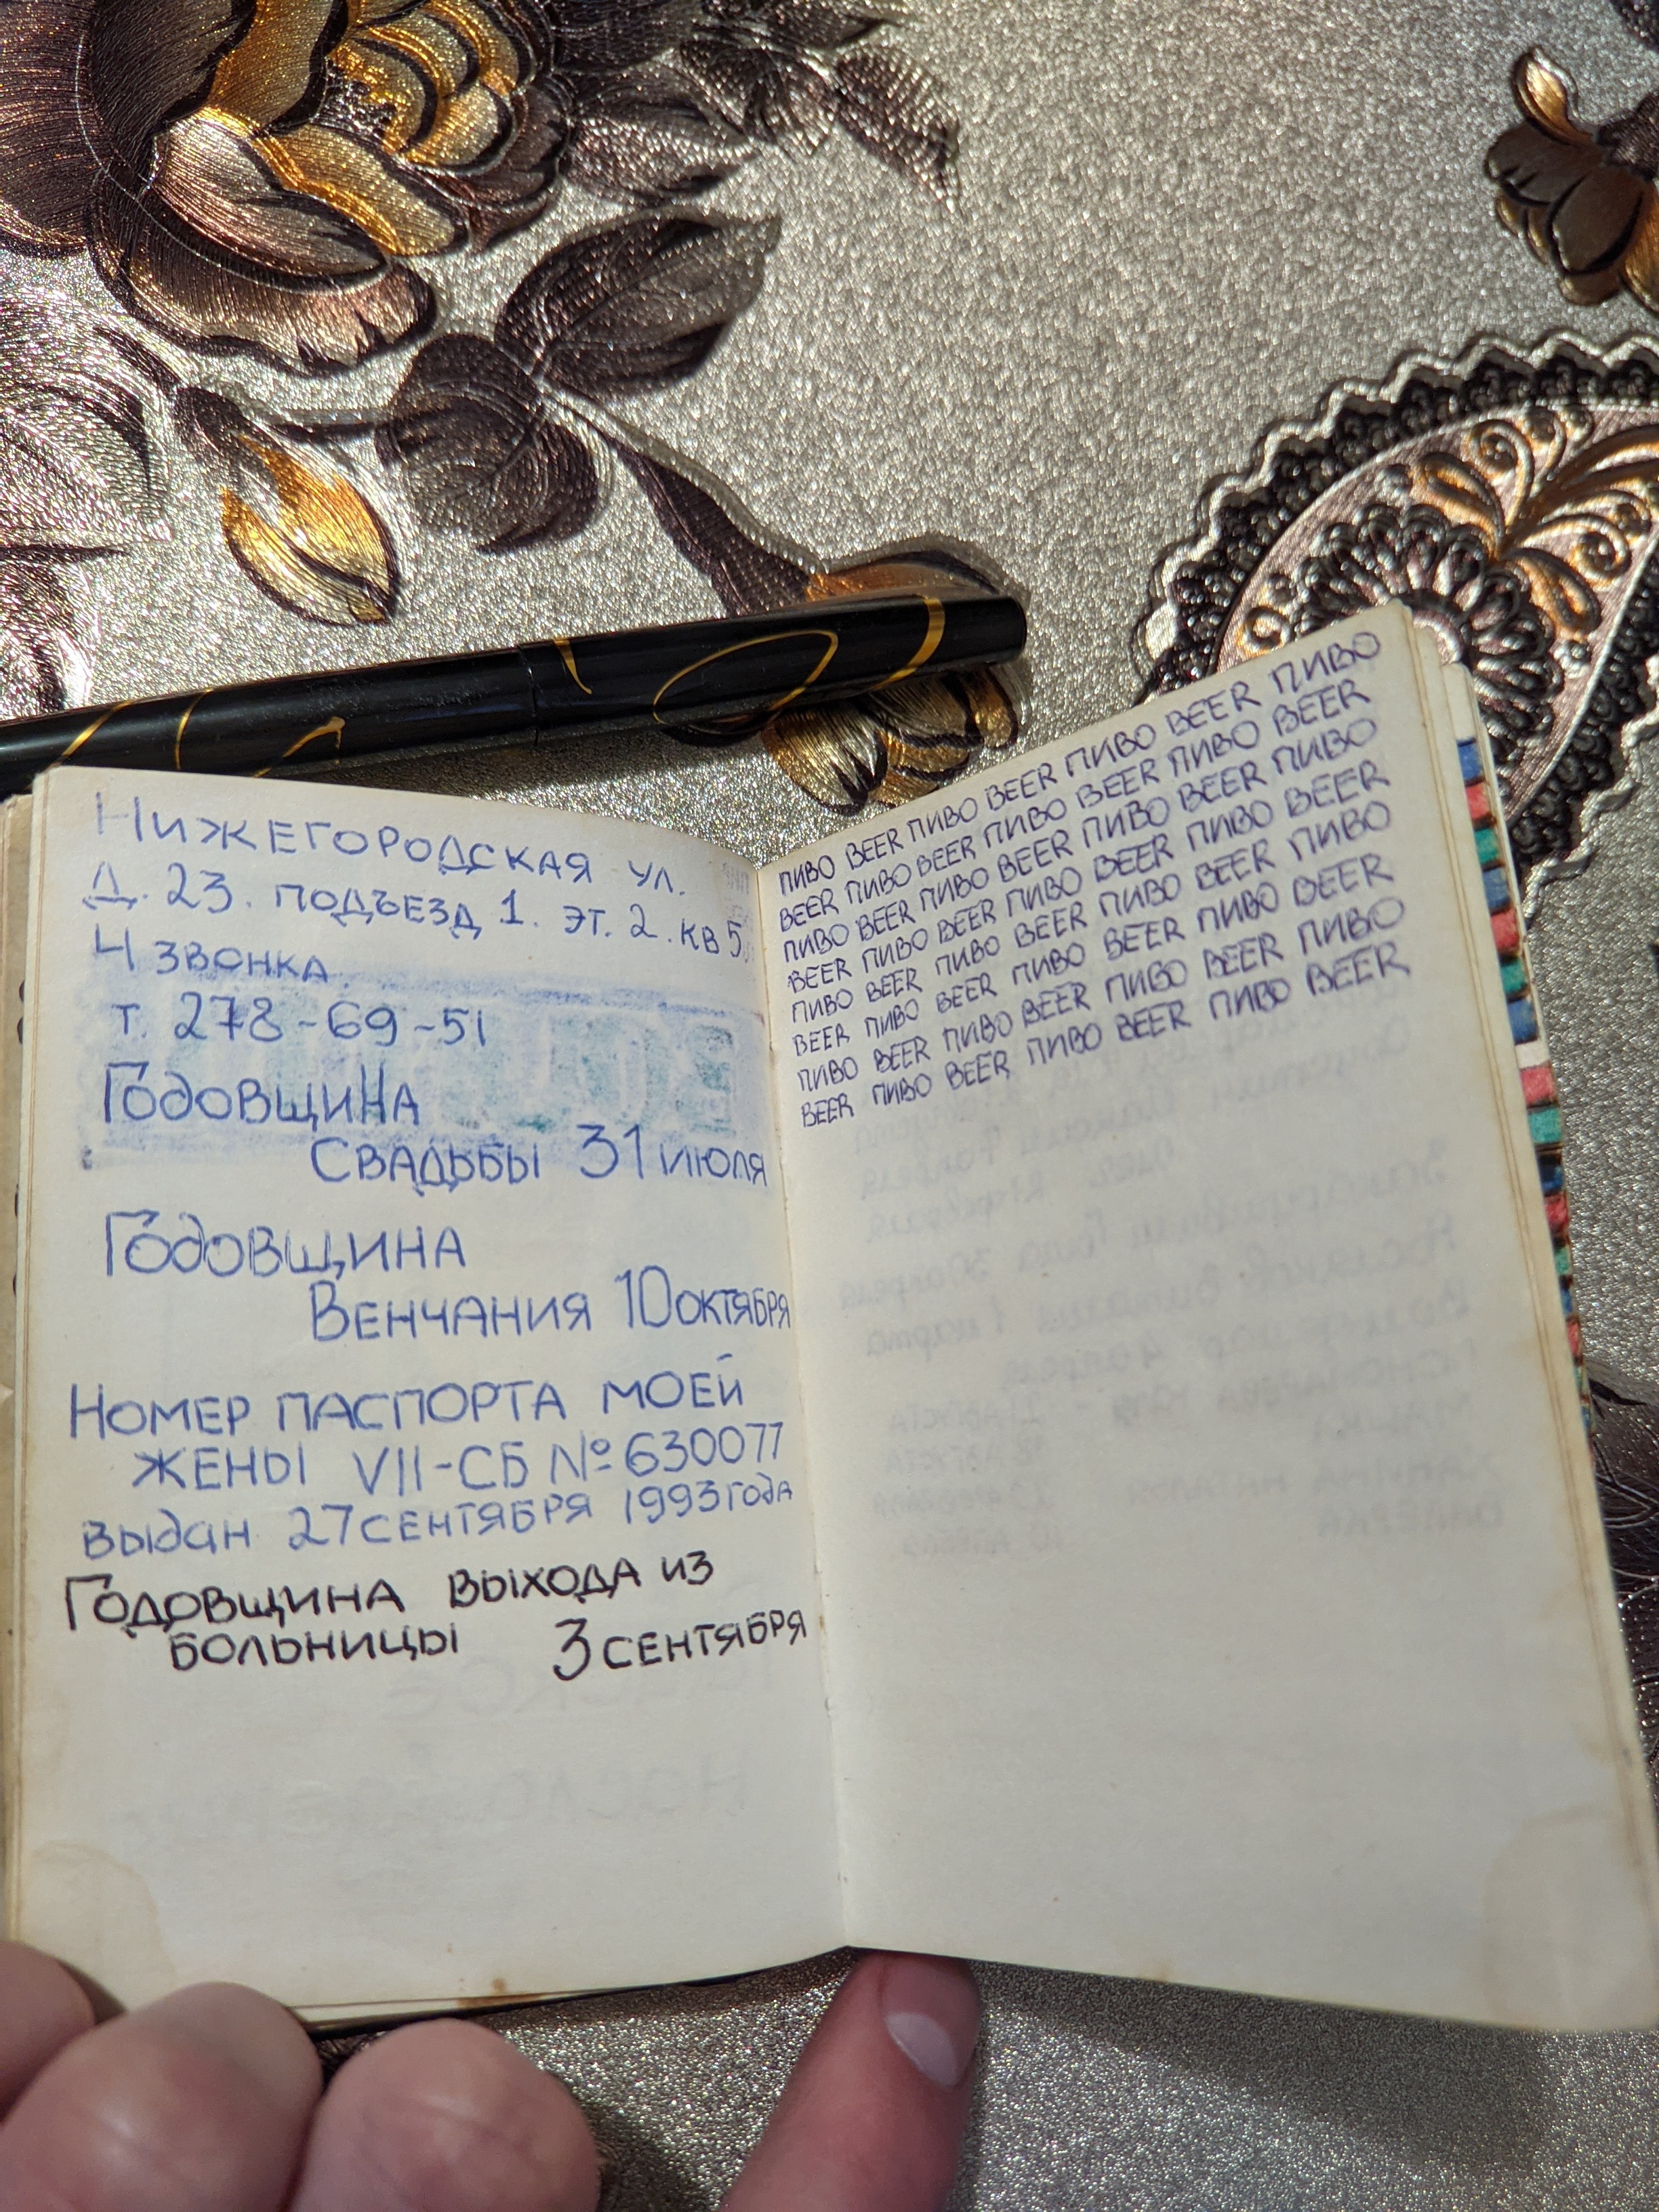 Нижегородская ул.
Д. 23. подъезд 1. эт. 2. кв 5.
4 звонка.
т. 278-69-51
Годовщина
Свадьбы 31 июля
Годовщина
Венчания 10 октября
Номер паспорта моей
жены VII-СБ № 630077
выдан 27 сентября 1993 года
Годовщина выхода из
больницы 3 сентября
ПИВО BEER ПИВО BEER ПИВО BEER ПИВО
BEER ПИВО BEER ПИВО BEER ПИВО BEER
ПИВО BEER ПИВО BEER ПИВО BEER ПИВО
BEER ПИВО BEER ПИВО BEER ПИВО BEER
ПИВО BEER ПИВО BEER ПИВО BEER ПИВО
BEER ПИВО BEER ПИВО BEER ПИВО BEER
ПИВО BEER ПИВО BEER ПИВО BEER ПИВО
BEER ПИВО BEER ПИВО BEER ПИВО BEER